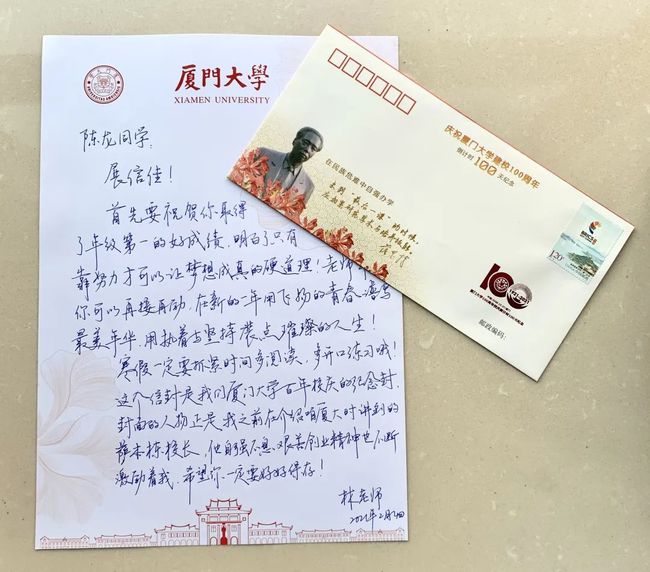 厦門大學
XIAMEN UNIVERSITY
陈龙同学:
展信佳!
首先要祝贺你取得
了年级第一的好成绩,明白了只有
靠努力才可以让梦想成真的硬道理!老师
你可以再接再励,在新的一年用飞扬的青春
最美年华,用执着与坚持装点璀璨的人生!
寒假一定要抓紧时间多阅读,多开口练习哦!
这个信封是我们厦门大学百年校庆的纪念封,
封面的人物正是我之前在介绍咱厦大时讲到的
萨本栋校长,他自强不息、艰苦创业精神也不断
激励着我,希望你一定要好好保存!
林老师
2021年2月
庆祝厦门大学建校100周年
倒计时100天纪念
在民族危难中自强办学
1.20
邮政编码: